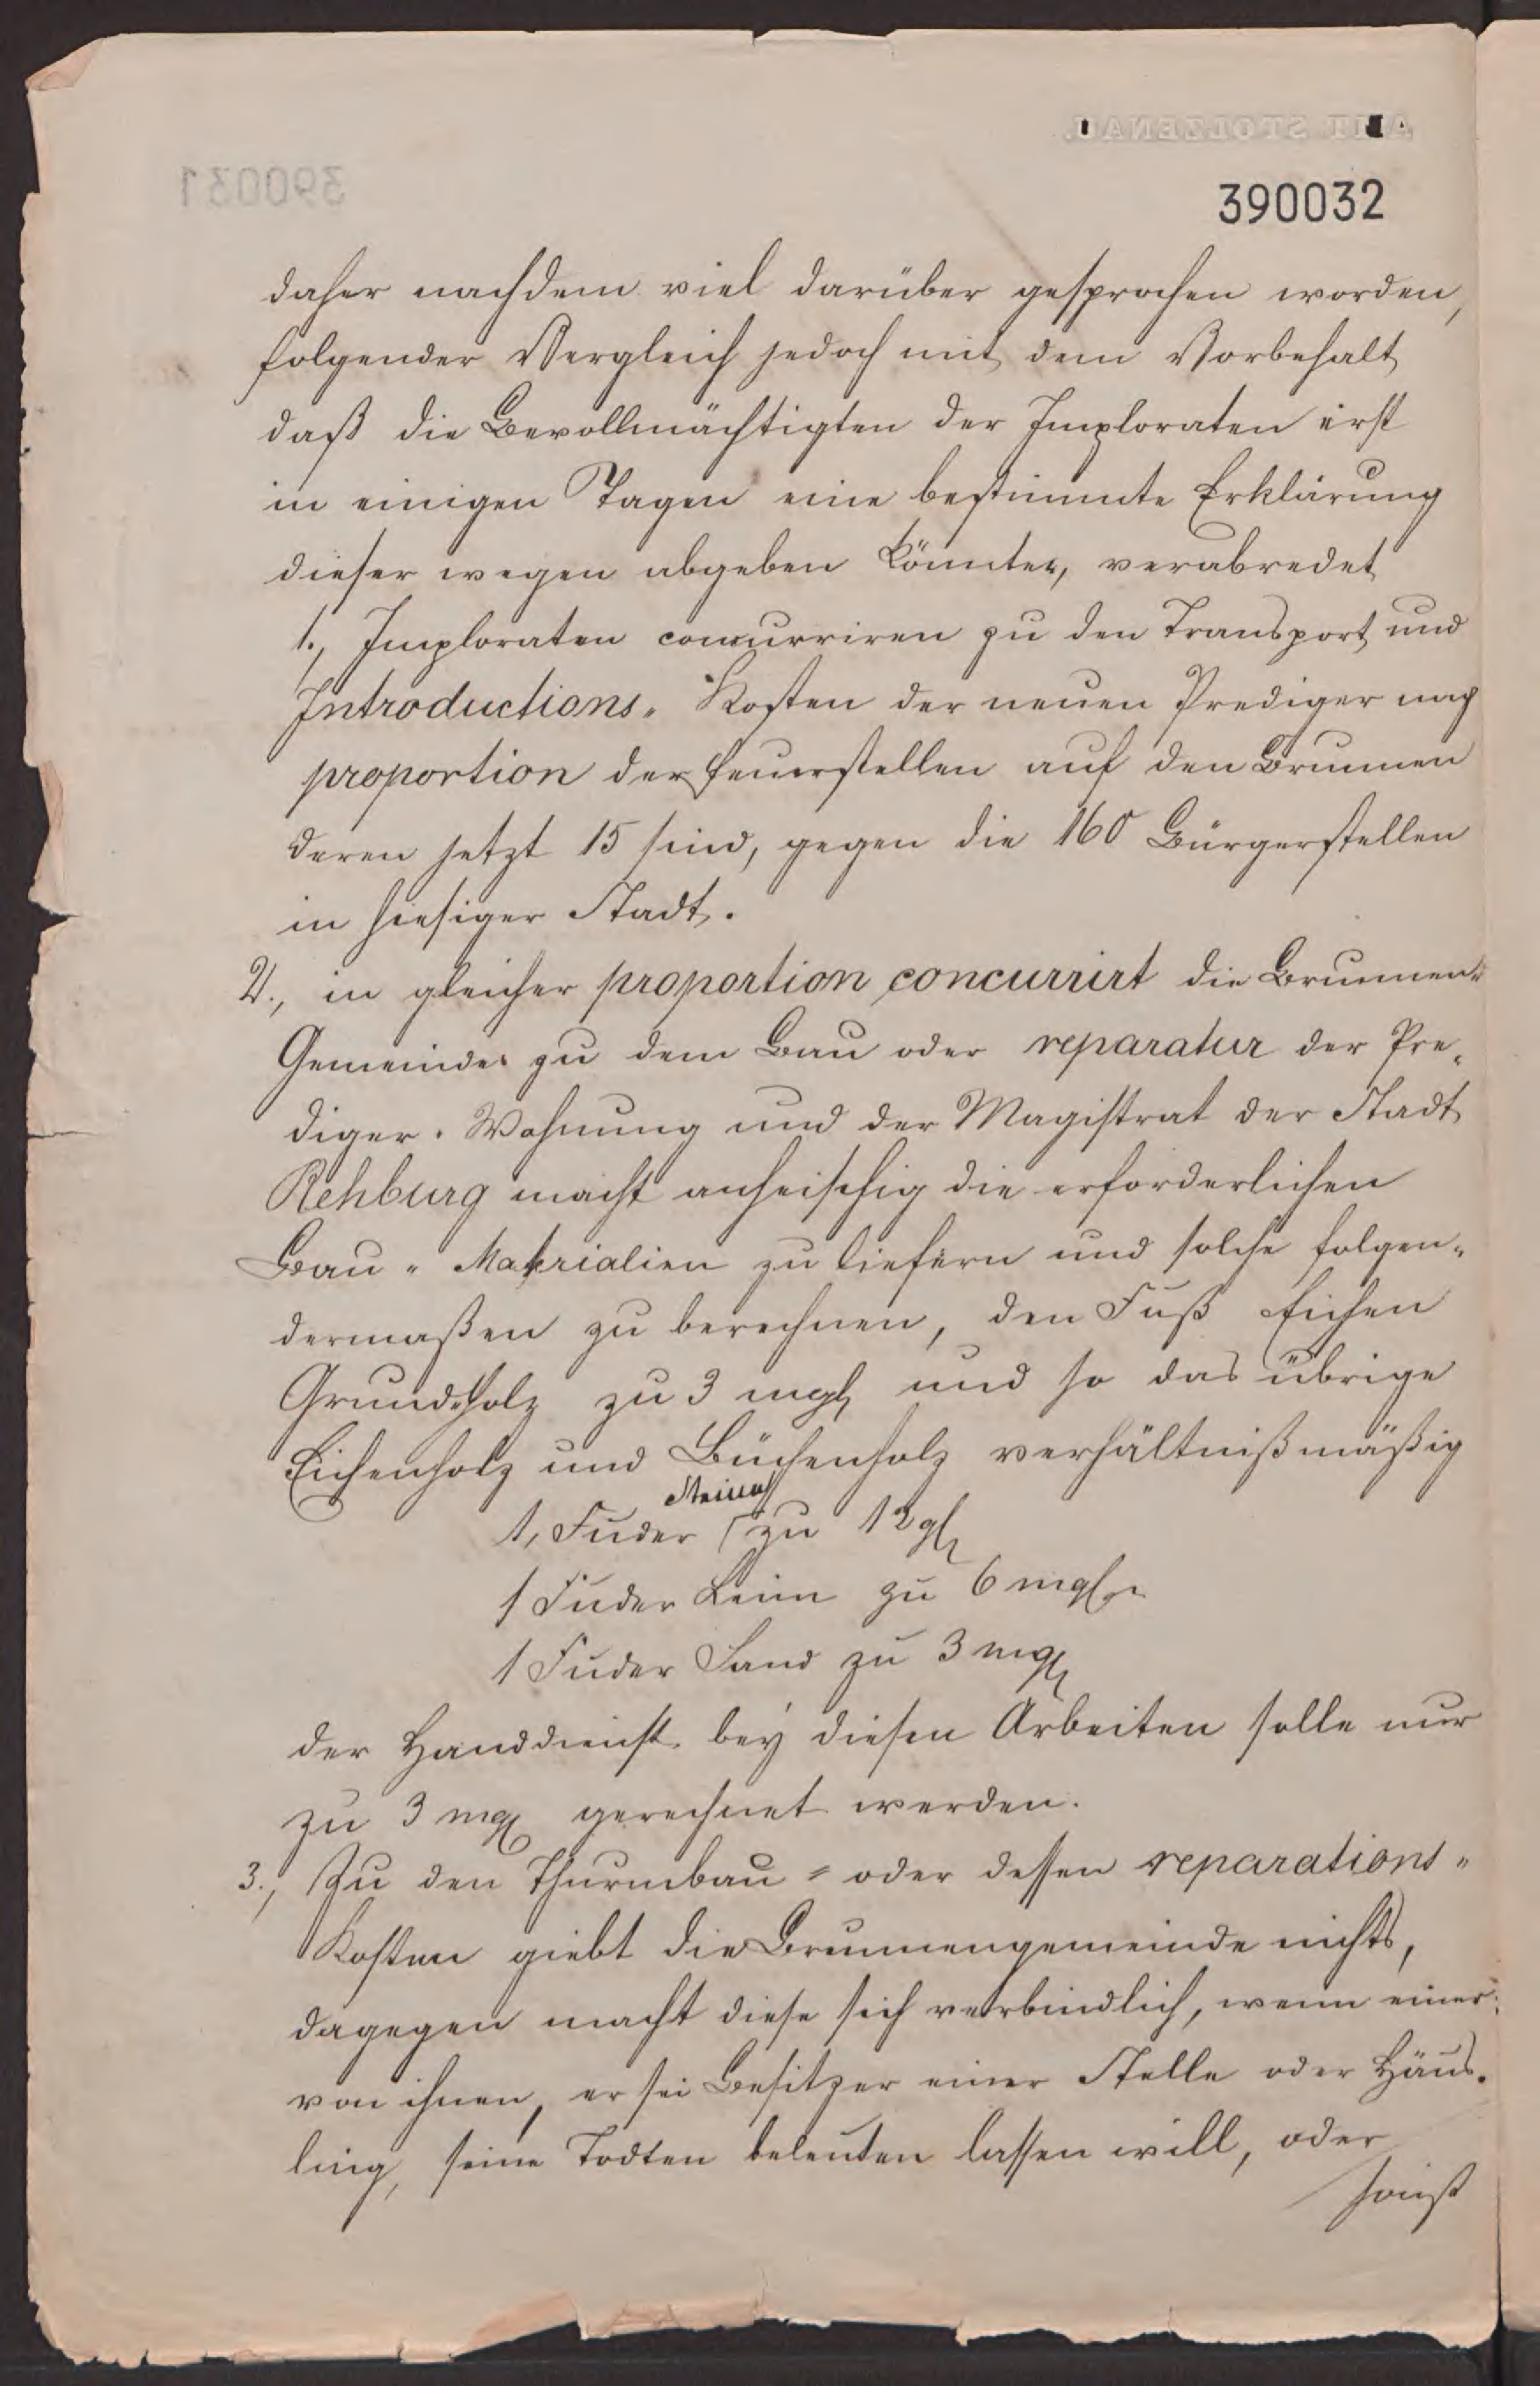 AMT STOLZENAU.
390031
390032
daher nachdem viel darüber gesprochen worden,
folgender Vergleich jedoch mit dem Vorbehalt
daß die Bevollmächtigten der Imploraten erst
in einigen Tagen eine bestimmte Erklärung
dieser wegen abgeben könnten, verabredet
1., Imploraten concurriren zu den Transport und
Introductions- Kosten der neuen Prediger nach
proportion der Feuerstellen auf den Brunnen
deren jetzt 15 sind, gegen die 160 Bürgerstellen
in hiesiger Stadt.
2., in gleicher proportion concurrirt die Brunnen-
Gemeinde zu dem Bau oder reparatur der Pre-
diger-Wohnung und der Magistrat der Stadt
Rehburg macht anheischig die erforderlichen
Bau-Materialien zu liefern und solche folgen-
dermaßen zu berechnen, den Fuß Eichen
Grundholz zu 3 mgl und so das übrige
Eichenholz und Büchenholz verhältnißmäßig
Steine
1, Fuder zu 12 gl
1 Fuder Leim zu 6 mgl
1 Fuder Sand zu 3 mgl
der Handdienst bey diesen Arbeiten solle nur
zu 3 mgl gerechnet werden.
3., Zu den Thurmbau- oder dessen reparations-
Kosten giebt die Brunnengemeinde nichts,
dagegen macht diese sich verbindlich, wenn einer
von ihnen, er sei Besitzer einer Stelle oder Häus-
ling, seine Todten beleuten lassen will, oder
sonst